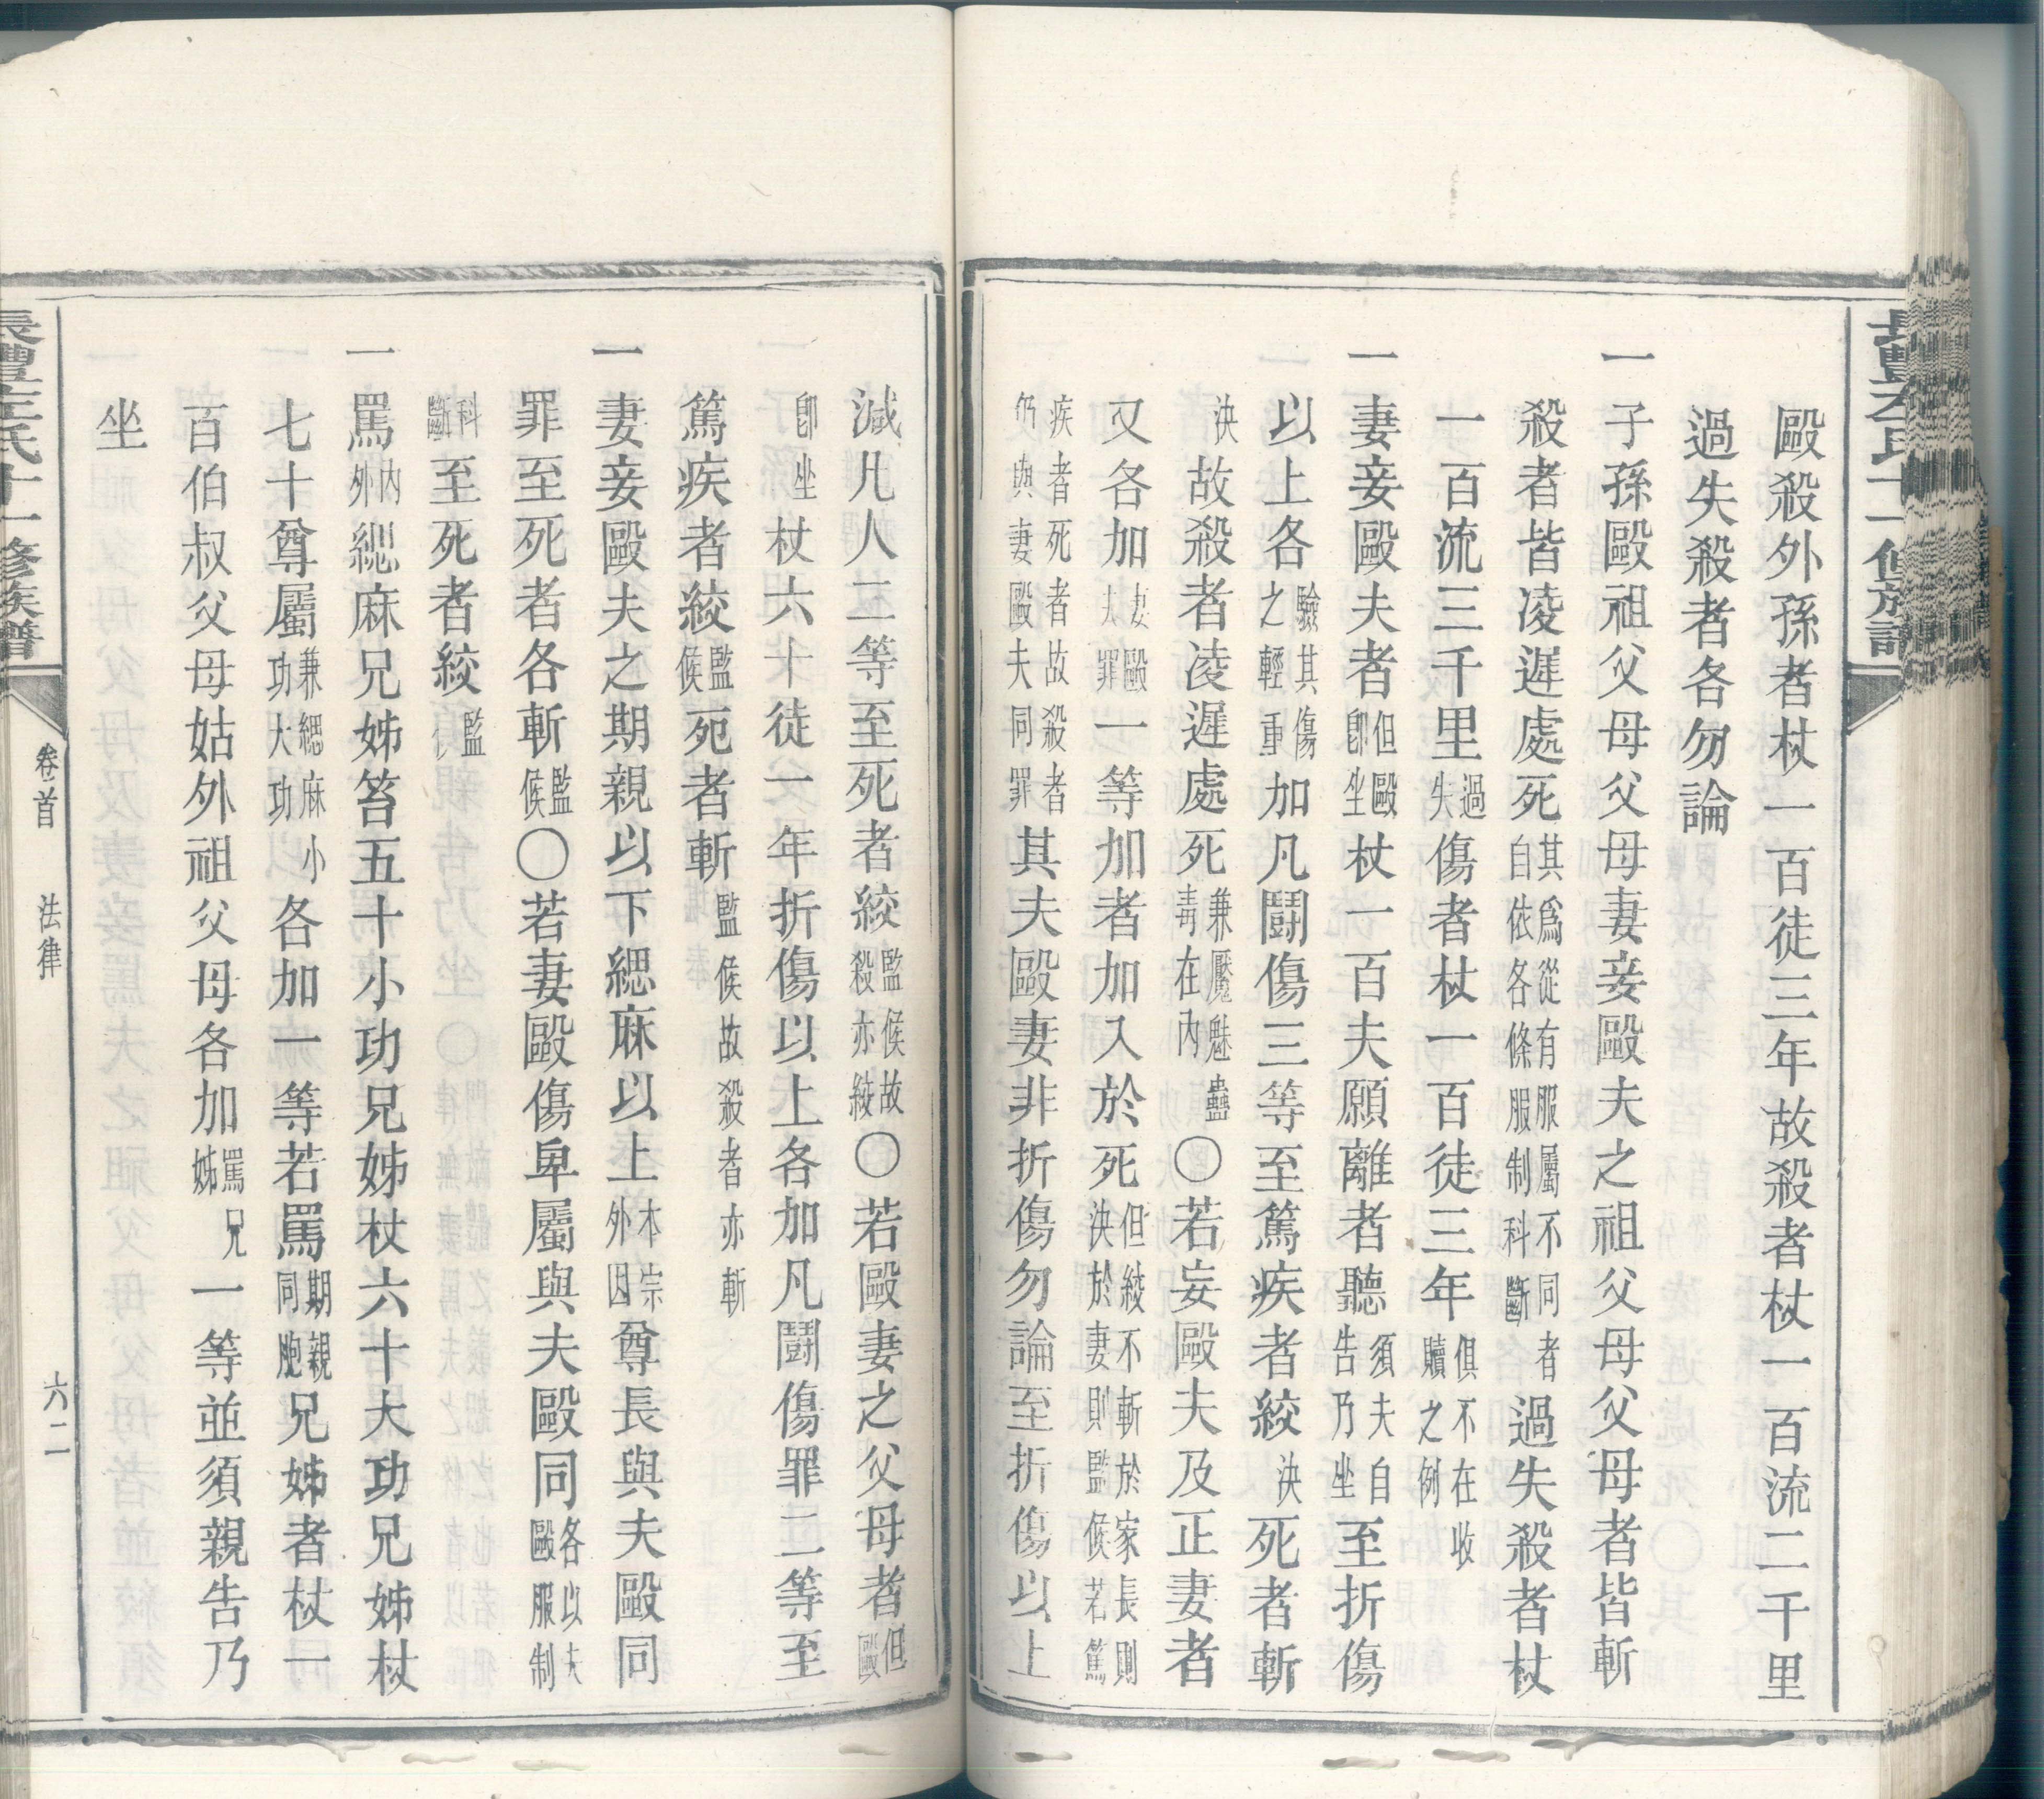 毆殺外孫者杖一百徒三年故殺者杖一百流二千里
過失殺者各勿論
一子孫毆祖父母父母妻妾毆夫之祖父母父母者皆斬
殺者皆凌遲處死其爲從有服屬不同者自依各條服制科斷過失殺者杖
一百流三千里過失傷者杖一百徒三年俱不在收贖之例
一妻妾毆夫者但毆卽坐杖一百夫願離者聽須夫自告乃坐至折傷
以上各驗其傷之輕重加凡鬪傷三等至篤疾者絞決死者斬
決故殺者凌遲處死兼魘魅蠱毒在內〇若妾毆夫及正妻者
又各加妻毆夫罪一等加者加入於死但絞不斬於家長則決於妻則監候若篤
疾者死者故殺者仍與妻毆夫同罪其夫毆妻非折傷勿論至折傷以上
減凡人二等至死者絞監候故殺亦絞〇若毆妻之父母者但毆
卽坐杖六十徒一年折傷以上各加凡鬪傷罪二等至
篤疾者絞監候死者斬監候故殺者亦斬
一妻妾毆夫之期親以下緦麻以上本宗外因尊長與夫毆同
罪至死者各斬監候〇若妻毆傷卑屬與夫毆同各以夫毆服制
科斷至死者絞監
一罵內外緦麻兄姊笞五十小功兄姊杖六十大功兄姊杖
七十尊屬兼緦麻小功大功各加一等若罵期親同胞兄姊者杖一
百伯叔父母姑外祖父母各加罵兄姊一等並須親告乃
坐
卷首
法律
六二